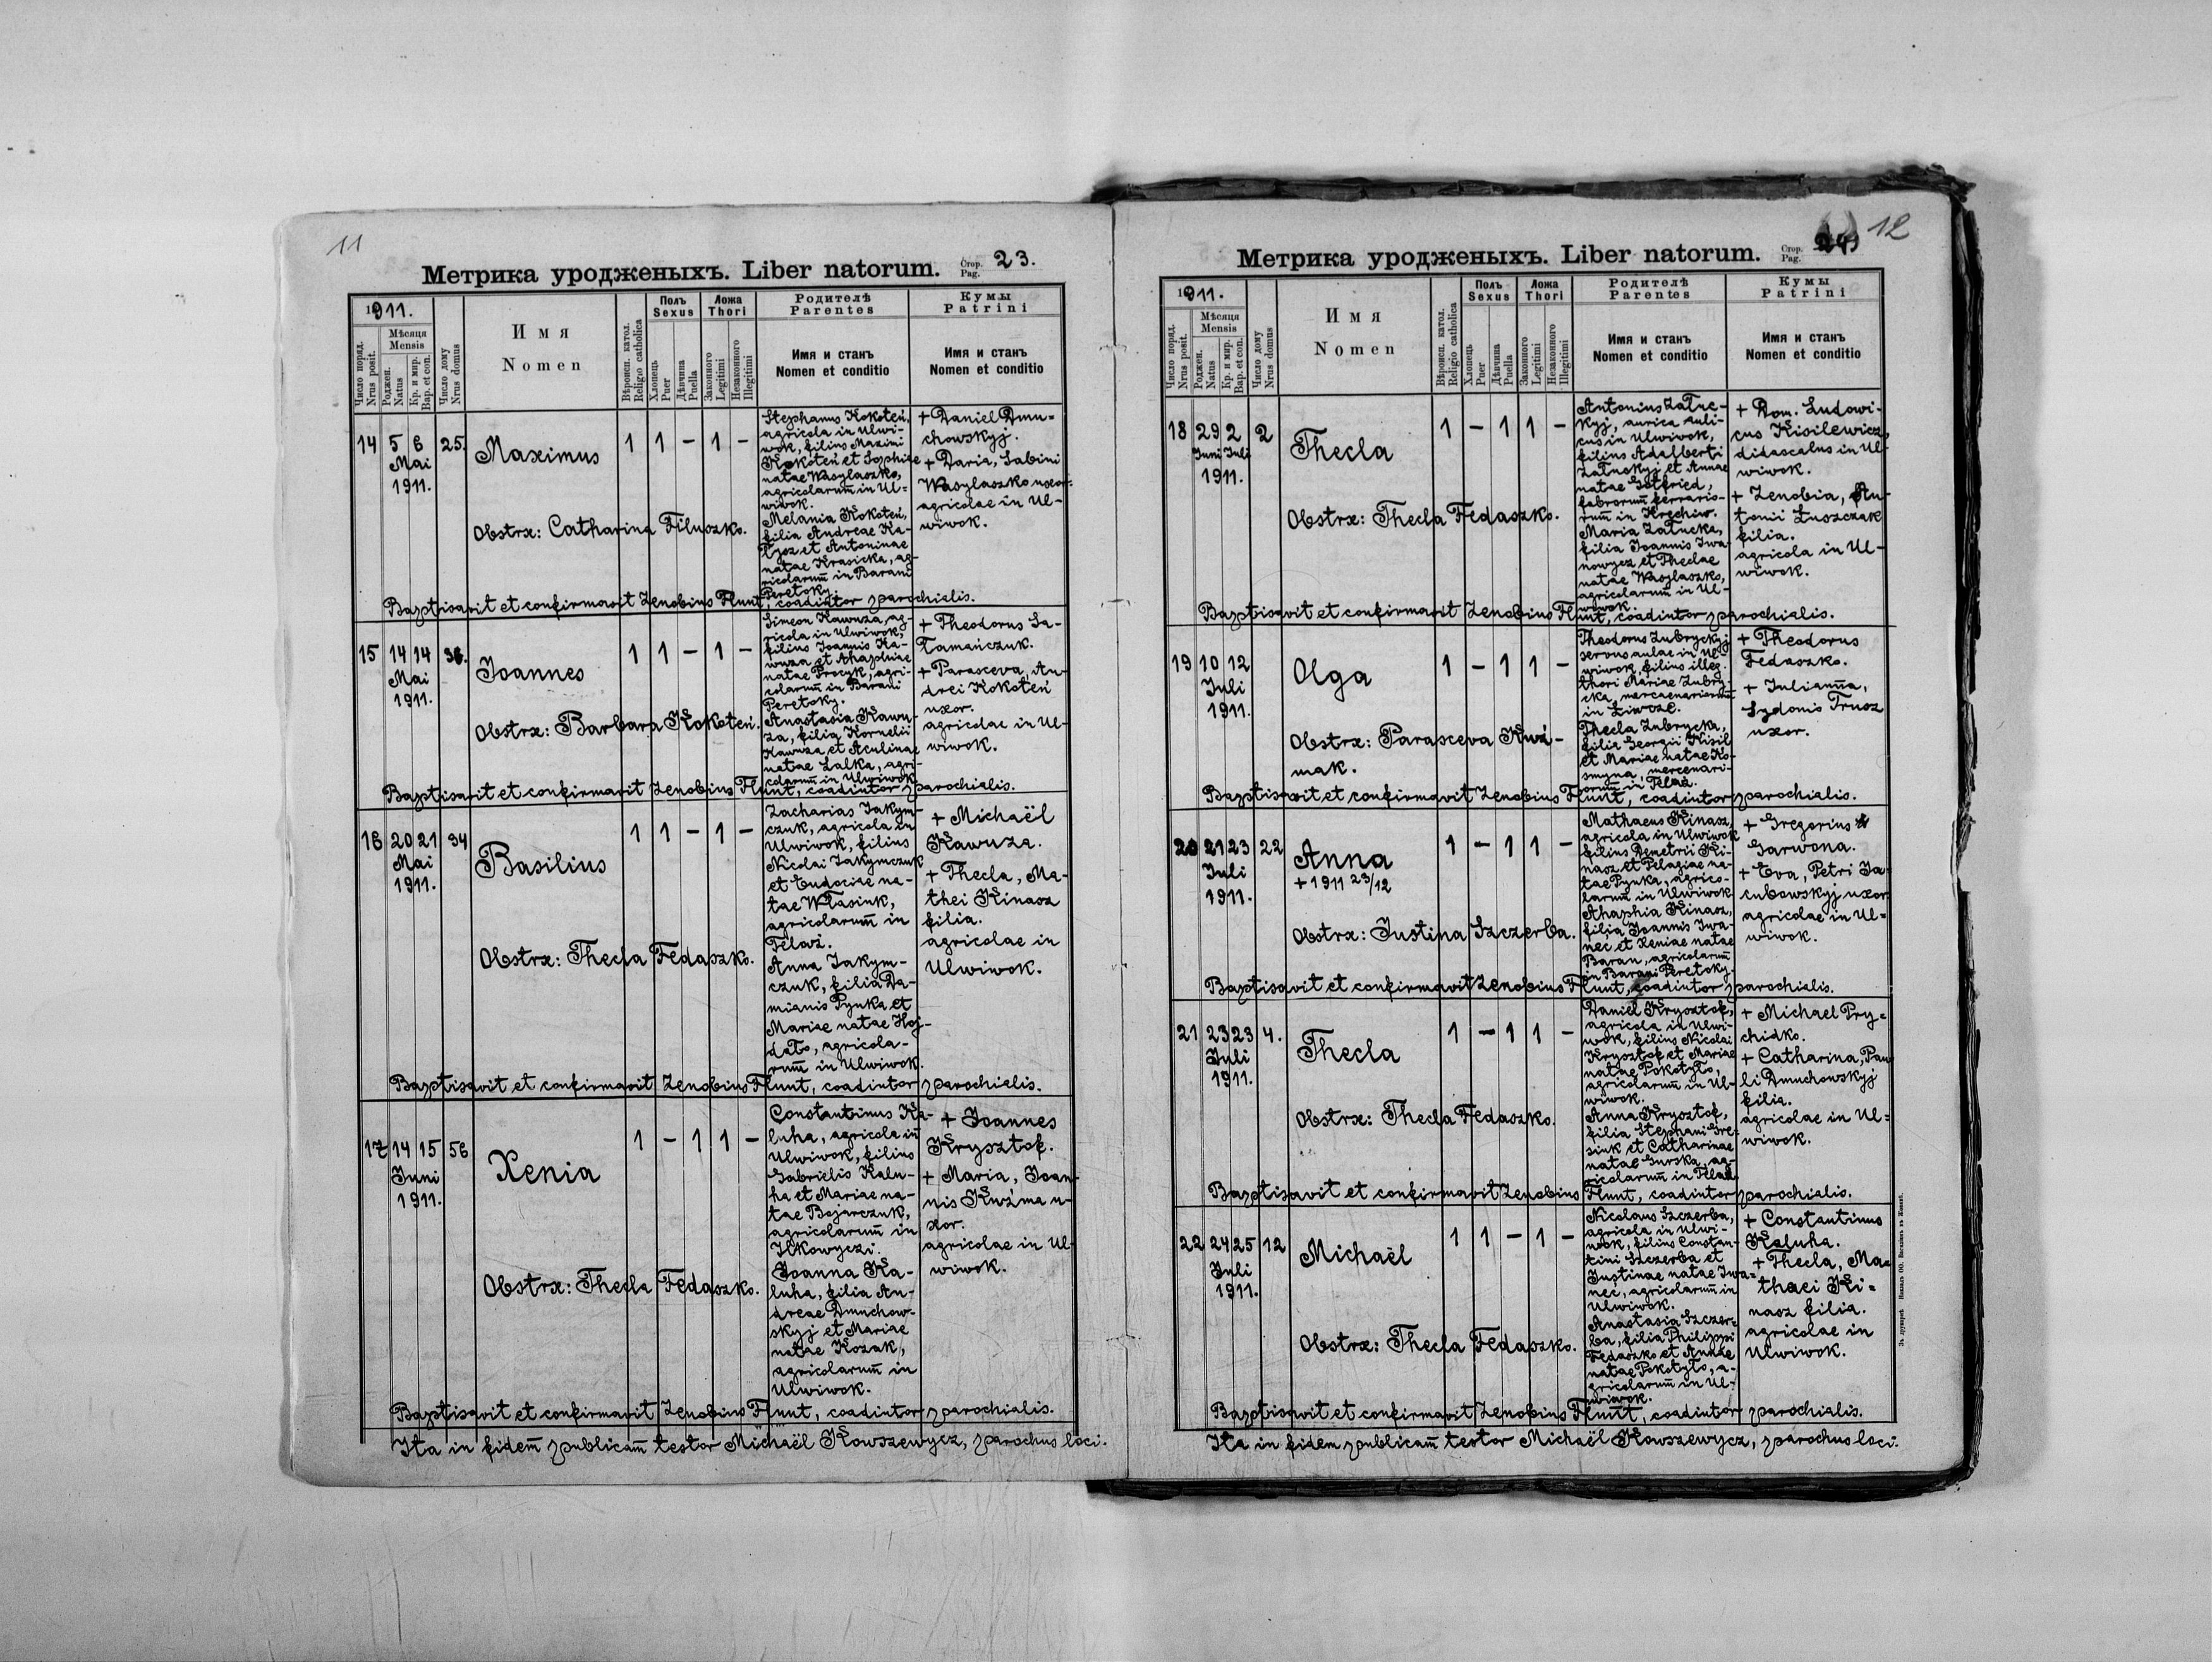 11
Метрика уродженыхъ. Liber natorum.
Стор.
Pag.
23.
1911.
Число поряд.
Nrus posit.
Мѣсяця
Mensis
Роджен.
Natus
Кр. и мир.
Bap. et con.
Число дому
Nrus domus
Имя
Nomen
Вѣроисп. катол.
Religio catholica
Полъ
Sexus
Хлопець
Puer
Дѣвчина
Puella
Ложа
Thori
Законного
Legitimi
Незаконного
Illegitimi
Родителѣ
Parentes
Имя и станъ
Nomen et conditio
Кумы
Patrini
Имя и станъ
Nomen et conditio
14 5 6 25. Maximus 1 1 – 1 –
Mai
1911.
Obstrx: Catharina Filuszko.
Stephanus Kokoteń,
agricola in Ulwi-
wok, filius Maximi
Kokoteń et Sophiae
natae Wasylaszko,
agricolarum in Ul=
wiwok.
Melania Kokoteń,
filia Andreae Ka-
łysz et Antoninae
natae Krasicka, ag-
ricolarum in Barani
Peretoky.
+ Daniel Dmu=
chowskyj.
+ Daria, Sabini
Wasylaszko uxor.
agricolae in Ul-
wiwok.
Baptisavit et confirmavit Zenobius Flunt, coadiutor parochialis.
15 14 14 36. Joannes 1 1 – 1 –
Mai
1911.
Obstrx: Barbara Kokoteń.
Simeon Kawuza, ag-
ricola in Ulwiwok,
filius Joannis Ka-
wuza et Ahaphiae
natae Procyk, agri-
colarum in Barani
Peretoky.
Anastasia Kawu-
za, filia Kornelii
Kawuza et Aculinae
natae Lalka, agri-
colarum in Ulwiwok.
+ Theodorus Sa-
łamańczuk.
+ Parasceva, An-
drei Kokoteń
uxor.
agricolae in Ul-
wiwok.
Baptisavit et confirmavit Zenobius Flunt, coadiutor parochialis.
16 20 21 34 Basilius 1 1 – 1 –
Mai
1911.
Obstrx: Thecla Fedaszko.
Zacharias Jakym-
czuk, agricola in
Ulwiwok, filius
Nicolai Jakymczuk
et Eudociae na-
tae Własiuk,
agricolarum in
Telaż.
Anna Jakym-
czuk, filia Da-
mianis Pynka et
Mariae natae Haj-
dało, agricola-
rum in Ulwiwok.
+ Michaël
Kawuza.
+ Thecla, Ma-
thei Kinasz
filia.
agricolae in
Ulwiwok.
Baptisavit et confirmavit Zenobius Flunt, coadiutor parochialis.
17 14 15 56 Xenia 1 – 1 1 –
Juni
1911.
Obstrx: Thecla Fedaszko.
Constantinus Ka-
luha, agricola in
Ulwiwok, filius
Gabrielis Kalu-
ha et Mariae na-
tae Bojarczuk,
agricolarum in
Ilkowyczi.
Joanna Ka-
luha, filia An-
dreae Dmuchow-
skyj et Mariae
natae Kozak,
agricolarum in
Ulwiwok.
+ Joannes
Krysztof.
+ Maria, Joan-
nis Kuźma u-
xor.
agricolae in Ul-
wiwok.
Baptisavit et confirmavit Zenobius Flunt, coadiutor parochialis.
Ita in fidem publicam testor Michaël Kowszewycz, parochus loci.
12
Метрика уродженыхъ. Liber natorum.
Стор.
Pag.
24)
1911.
Число поряд.
Nrus posit.
Мѣсяця
Mensis
Роджен.
Natus
Кр. и мир.
Bap. et con.
Число дому
Nrus domus
Имя
Nomen
Вѣроисп. катол.
Religio catholica
Полъ
Sexus
Хлопець
Puer
Дѣвчина
Puella
Ложа
Thori
Законного
Legitimi
Незаконного
Illegitimi
Родителѣ
Parentes
Имя и станъ
Nomen et conditio
Кумы
Patrini
Имя и станъ
Nomen et conditio
18 29 2 2 Thecla 1 – 1 1 –
Juni Juli
1911.
Obstrx: Thecla Fedaszko.
Antonius Załuc-
kyj, aurica auli-
cus in Ulwiwok,
filius Adalberti
Załuckyj et Annae
natae Gotfried,
fabrorum ferrario-
rum in Krechiw.
Maria Załucka,
filia Joannis Iwa-
nowycz et Theclae
natae Wasylaszko,
agricolarum in Ul-
wiwok.
+ Dom. Ludowi-
cus Kisilewicz,
didascalus in Ul-
wiwok.
+ Zenobia, An-
tonii Łuszczak
filia.
agricola in Ul-
wiwok.
Baptisavit et confirmavit Zenobius Flunt, coadiutor parochialis.
19 10 12 Olga 1 – 1 1 –
Juli
1911.
Obstrx: Parasceva Kuź-
mak.
Theodorus Zubryckyj
servus aulae in Ul-
wiwok, filius illeg.
thori Mariae Zubry-
cka, mercenariorum
in Liwcze.
Thecla Zubrycka,
filia Georgii Kisil
et Mariae natae Ko-
smyna, mercenari-
orum in Telaż.
+ Theodorus
Fedaszko.
+ Julianna,
Sydonis Trusz
uxor.
Baptisavit et confirmavit Zenobius Flunt, coadiutor parochialis.
20 21 23 22 Anna 1 – 1 1 –
+ 1911 23/12
Juli
1911.
Obstrx: Justina Szczerba.
Mathaeus Kinasz,
agricola in Ulwiwok
filius Demetrii Ki-
nasz et Pelagiae na-
tae Pynka, agrico-
larum in Ulwiwok
Ahaphia Kinasz,
filia Joannis Iwa-
nec et Xeniae natae
Baran, agricolarum
in Barani Peretoky.
+ Gregorius
Garwona.
+ Eva, Petri Ja-
cubowskyj uxor.
agricolae in Ul=
wiwok.
Baptisavit et confirmavit Zenobius Flunt, coadiutor parochialis.
21 23 23 4. Thecla 1 – 1 1 –
Juli
1911.
Obstrx: Thecla Fedaszko.
Daniel Krysztof,
agricola in Ulwi-
wok, filius Nicolai
Krysztof et Mariae
natae Pokotyło,
agricolarum in Ul-
wiwok.
Anna Krysztof,
filia Stephani Gre-
siuk et Catharinae
natae Gurska, ag-
ricolarum in Telaż.
+ Michael Pry=
chidko.
+ Catharina, Pau-
li Dmuchowskyj
filia.
agricolae in Ul=
wiwok.
Baptisavit et confirmavit Zenobius Flunt, coadiutor parochialis.
22 24 25 12 Michaël 1 1 – 1 –
Juli
1911.
Obstrx: Thecla Fedaszko.
Nicolaus Szczerba,
agricola in Ulwi-
wok, filius Constan-
tini Szczerba et
Justinae natae Iwa=
nec, agricolarum in
Ulwiwok.
Anastasia Szczer=
ba, filia Philippi
Fedaszko et Annae
natae Pokotyło, a-
gricolarum in Ul-
wiwok.
+ Constantinus
Kaluha.
+ Thecla, Ma=
thaei Ki=
nasz filia.
agricolae in
Ulwiwok.
Baptisavit et confirmavit Zenobius Flunt, coadiutor parochialis.
Ita in fidem publicam testor Michaël Kowszewycz, parochus loci.